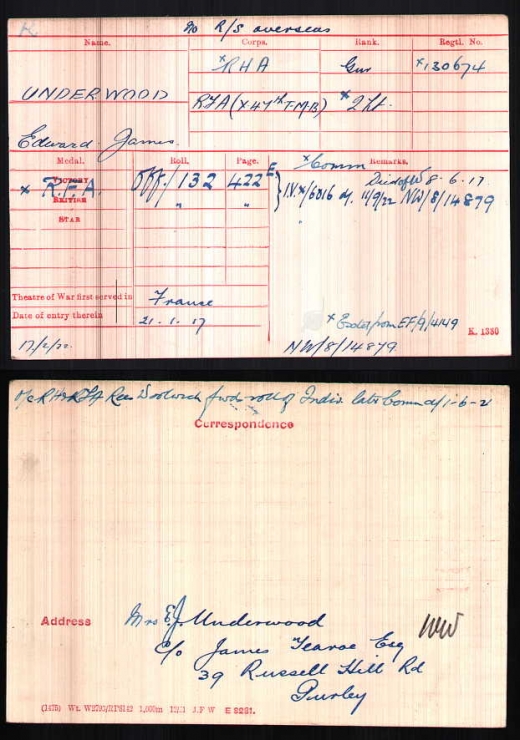 No R/S overseas
Name. Corps. Rank. Regtl. No.
x RHA Gnr x 130674
UNDERWOOD
RFA (X47th T.M.B) x 2/Lt.
Edward James.
Medal. Roll. Page. Remarks.
x Comm
VICTORY OFF/132 422 E Died of W 8-6-17
x R.F.A. I.V. x/6016 d/. 11/9/22 NW/8/14879
BRITISH " "
STAR
Theatre of War first served in France
Date of entry therein 21.1.17
x Extr from EF/9/4149
K. 1380
17/2/22. NW/8/14879
O/c RH & RFA Rec Woolwich fwds roll of Indiv. late Comm d/1-6-21
Correspondence
Address Mrs E J Underwood NW
C/o James Esq
39 Russell Hill Rd
Purley
J.F.W E 9281.